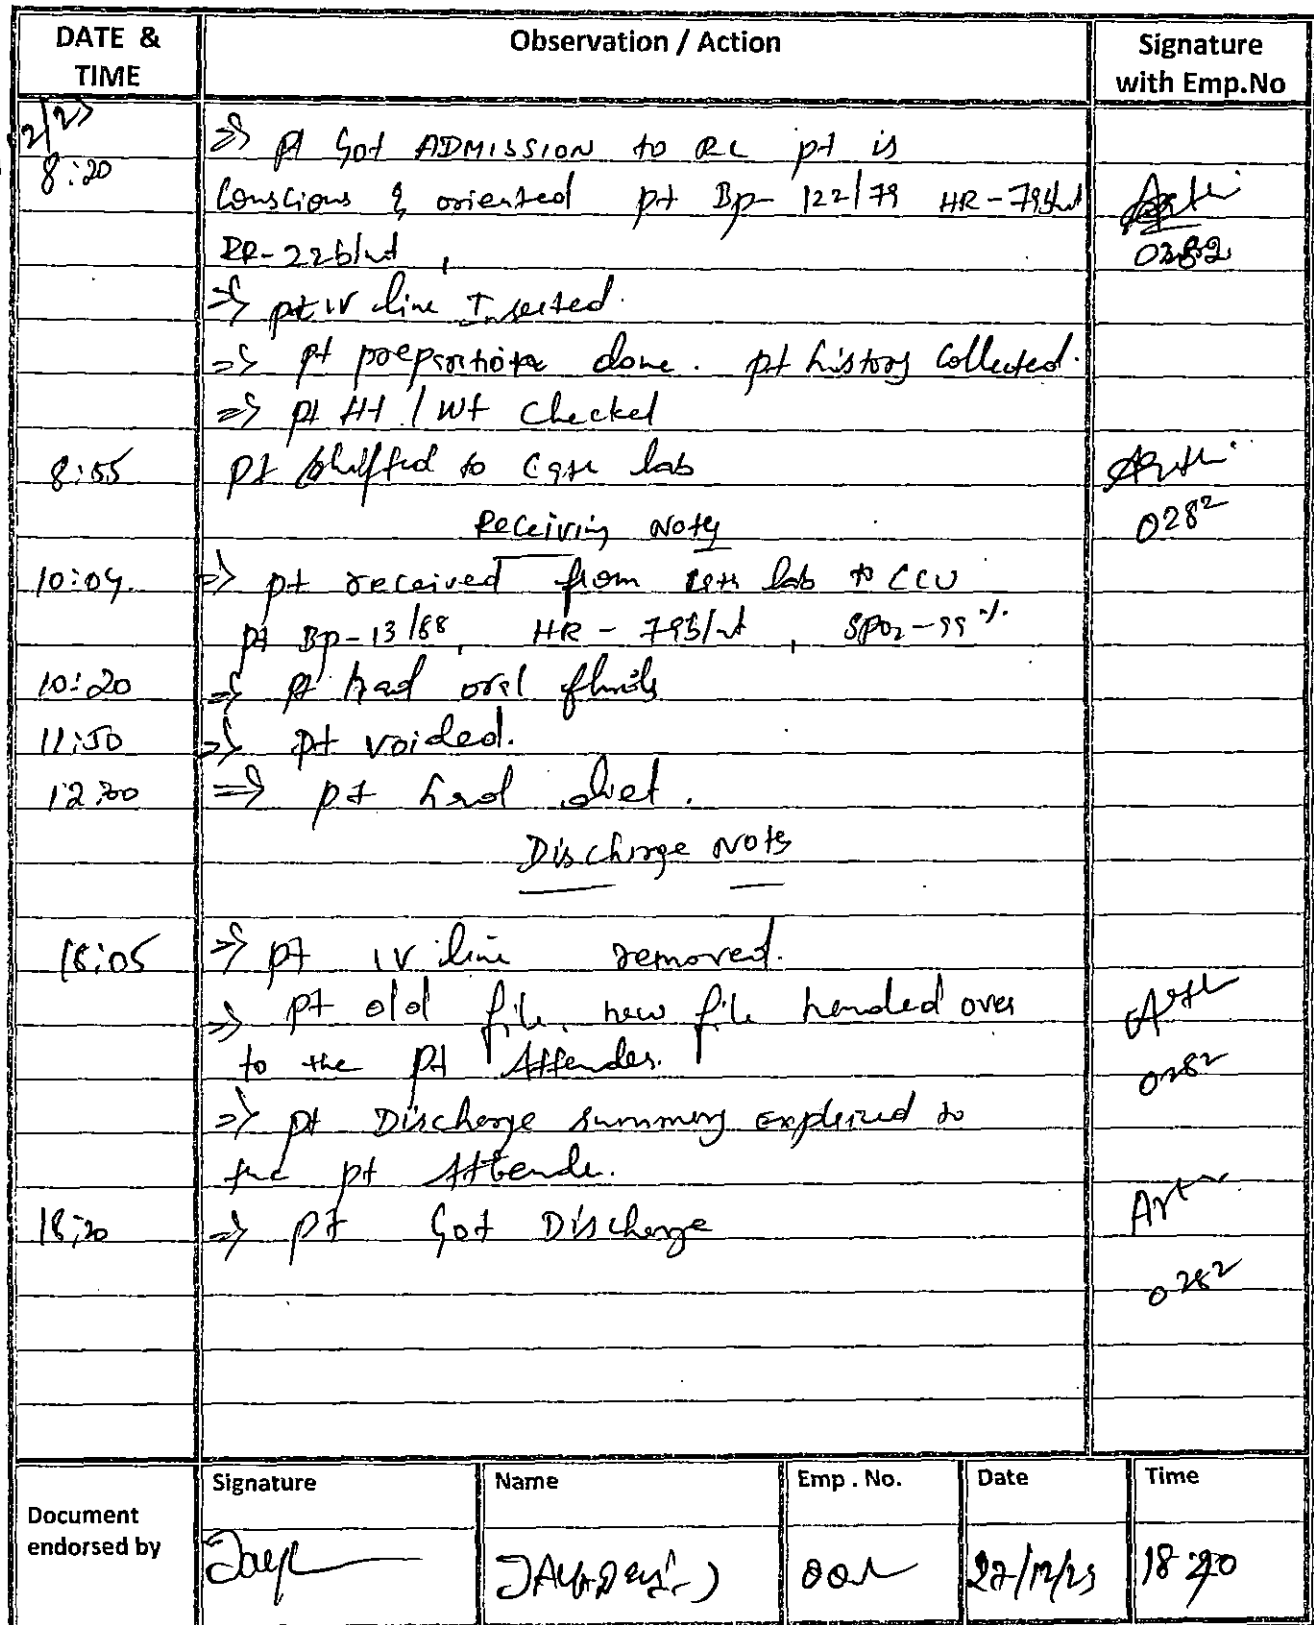 DATE & TIME Observation / Action Signature with Emp.No
8:20 => pt Got ADMISSION to RL pt is
Conscious & oriented pt Bp- 122/79 HR-79b/mt
RR-22b/mt, 0282
=> pt IV line Inserted.
=> pt preparation done. pt history Collected.
=> pt Ht / Wt Checked
8:55 pt shiffted to Cath lab Arthi
Receiving Notes 0282
10:04. => pt received from Cath lab to CCU
pt Bp-13/88, HR - 79b/mt, SPO2-99%
10:20 => pt had oral fluids
11:50 => pt voided.
12:30 => pt had diet.
Discharge Nots
18:05 => pt IV line removed.
=> pt old file, new file handed over
to the pt Attender. 0282
=> pt Discharge summary explained to
the pt Attende.
18:20 => pt Got Discharge
0282
Document endorsed by Signature Name Emp . No. Date Time
18:20